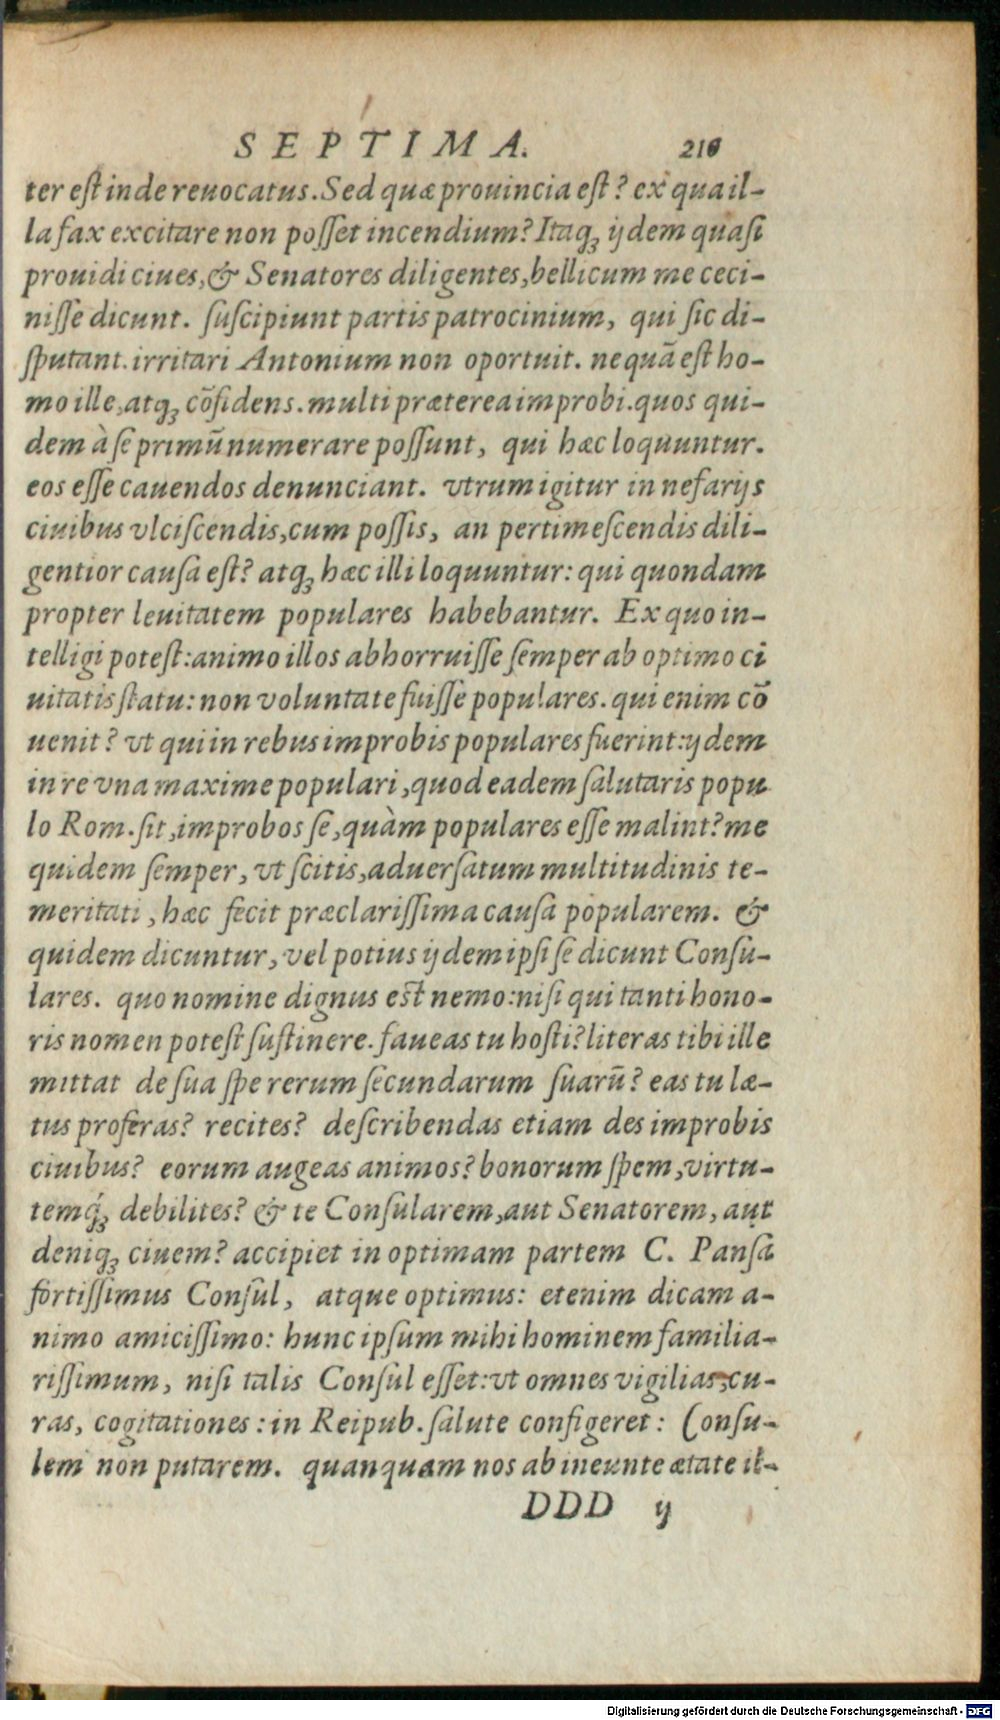 SEPTIMA. 210
ter est inde reuocatus. Sed quæ prouincia est? ex qua il-
la fax excitare non posset incendium? Itaqꝫ ijdem quasi
prouidi ciues, & Senatores diligentes, bellicum me ceci-
nisse dicunt. suscipiunt partis patrocinium, qui sic di-
sputant. irritari Antonium non oportuit. nequā est ho-
mo ille, atqꝫ cōfidens. multi præterea improbi. quos qui-
dem à se primū numerare possunt, qui hæc loquuntur.
eos esse cauendos denunciant. vtrum igitur in nefarijs
ciuibus vlciscendis, cum possis, an pertimescendis dili-
gentior causa est? atqꝫ hæc illi loquuntur: qui quondam
propter leuitatem populares habebantur. Ex quo in-
telligi potest: animo illos abhorruisse semper ab optimo ci
uitatis statu: non voluntate fuisse populares. qui enim cō
uenit? vt qui in rebus improbis populares fuerint: ijdem
in re vna maxime populari, quod eadem salutaris popu
lo Rom. sit, improbos se, quàm populares esse malint? me
quidem semper, vt scitis, aduersatum multitudinis te-
meritati, hæc fecit præclarissima causa popularem. &
quidem dicuntur, vel potius ijdem ipsi se dicunt Consu-
lares. quo nomine dignus est nemo: nisi qui tanti hono-
ris nomen potest sustinere. faueas tu hosti? literas tibi ille
mittat de sua spe rerum secundarum suarū? eas tu læ-
tus proferas? recites? describendas etiam des improbis
ciuibus? eorum augeas animos? bonorum spem, virtu-
temq́ꝫ debilites? & te Consularem, aut Senatorem, aut
deniqꝫ ciuem? accipiet in optimam partem C. Pansa
fortissimus Consul, atque optimus: etenim dicam a-
nimo amicissimo: hunc ipsum mihi hominem familia-
rissimum, nisi talis Consul esset: vt omnes vigilias, cu-
ras, cogitationes: in Reipub. salute configeret: Consu-
lem non putarem. quanquam nos ab ineunte ætate il-
DDD ij
Digitalisierung gefördert durch die Deutsche Forschungsgemeinschaft - DFG